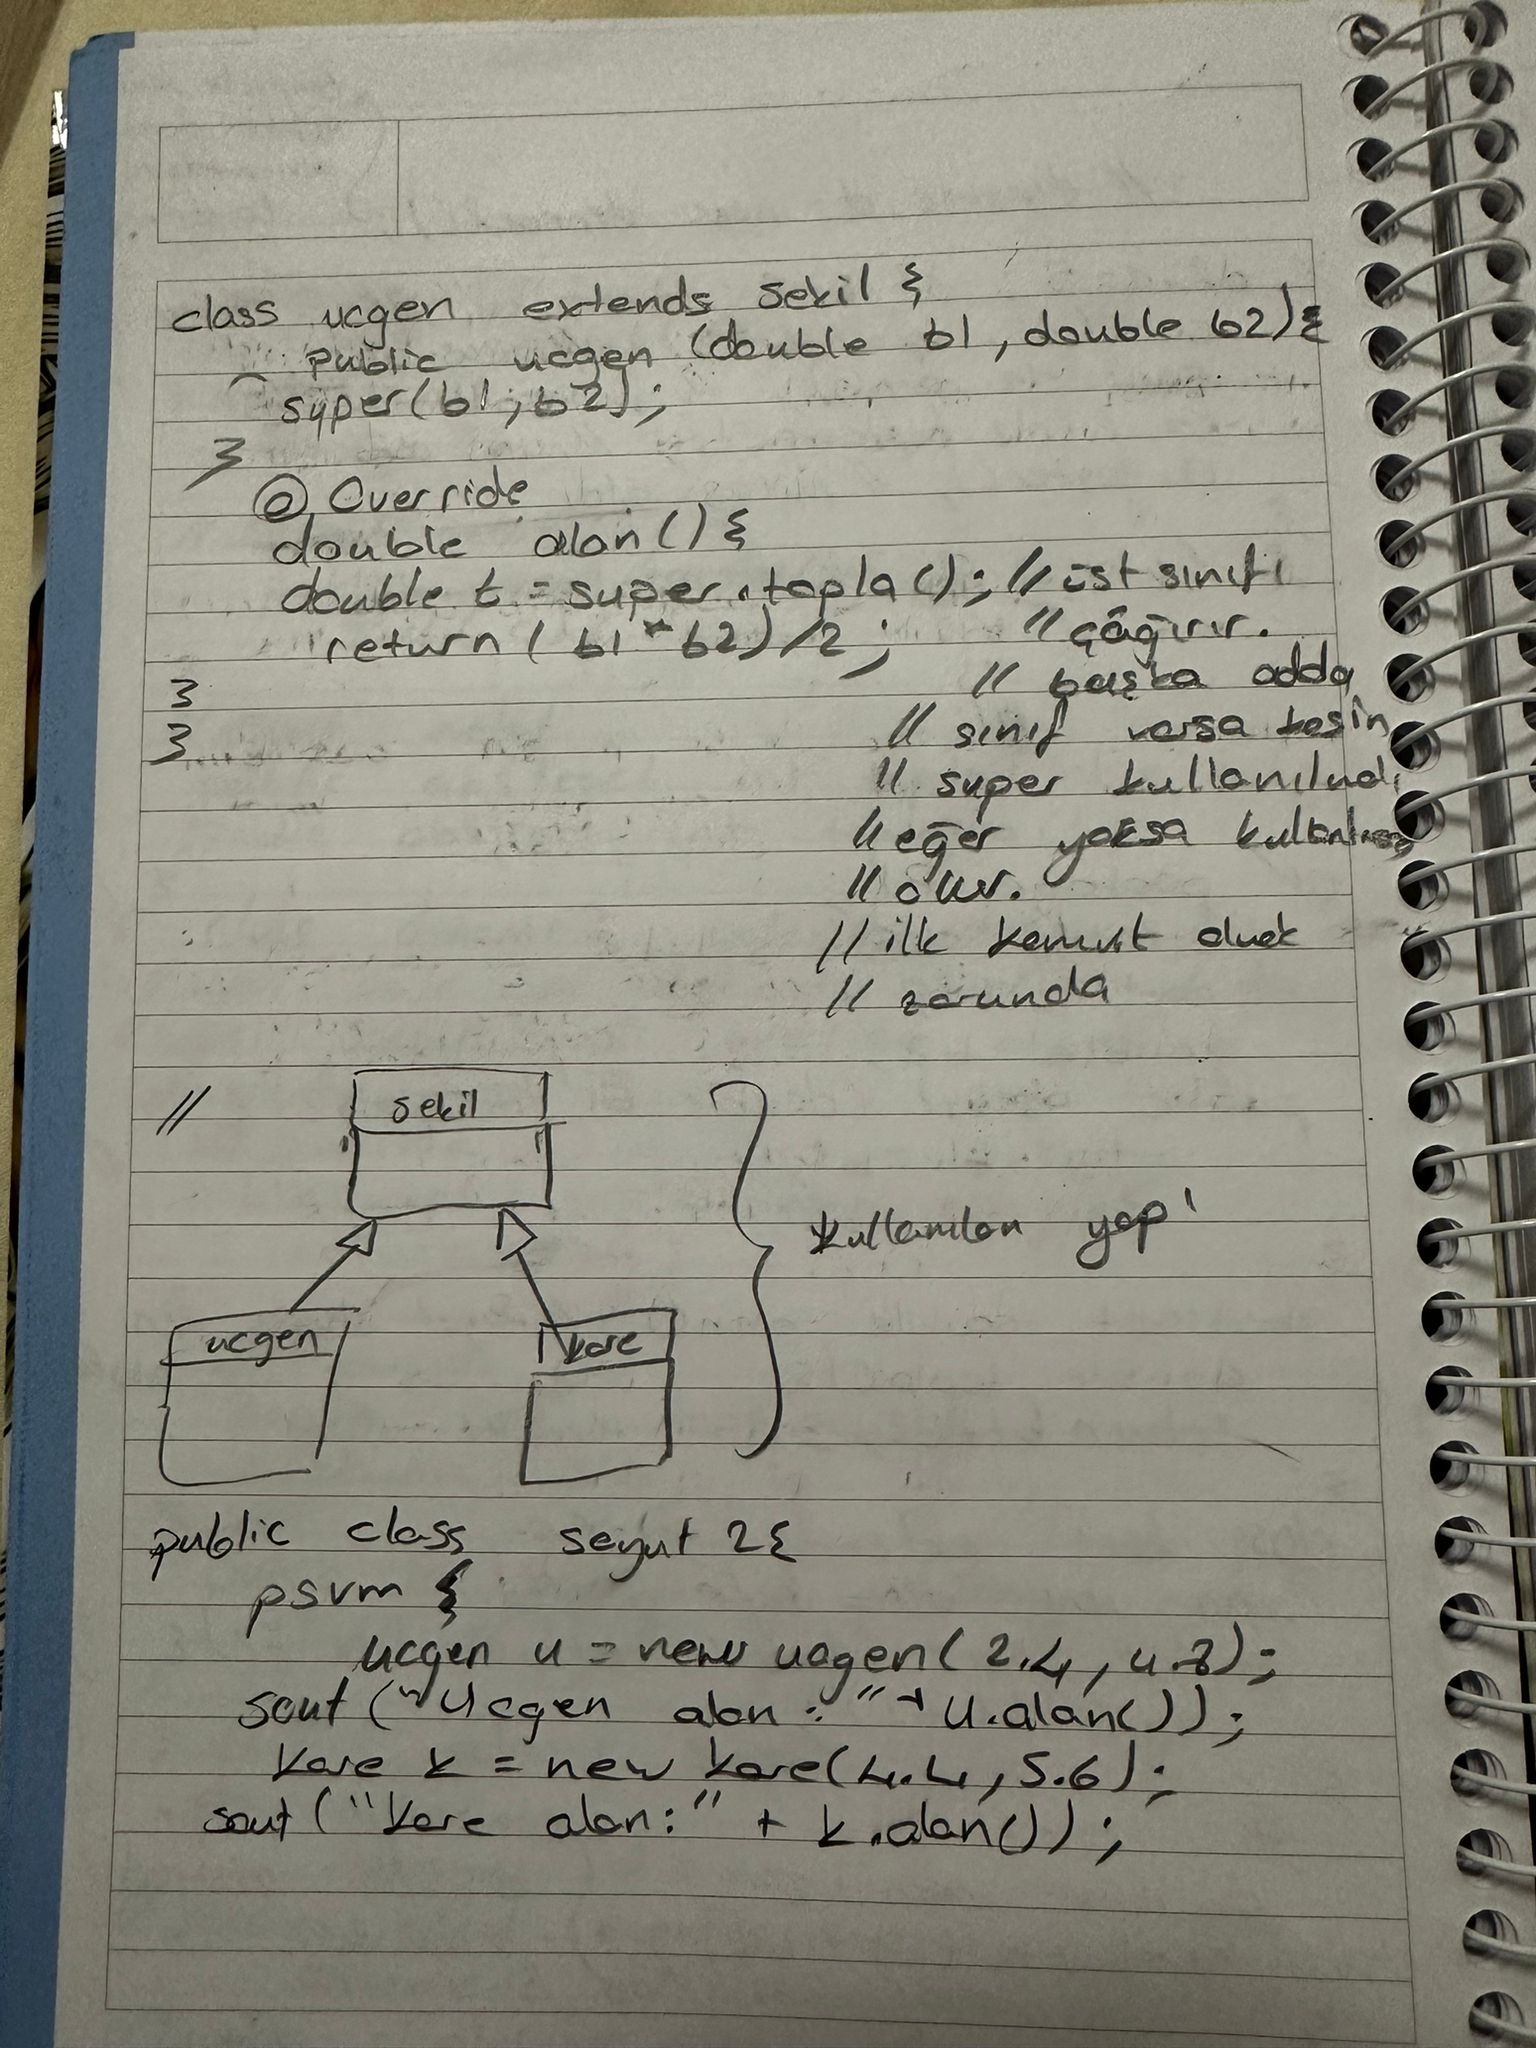 class ucgen extends sekil {
public ucgen (double b1, double b2){
super(b1, b2);
}
@Override
double alan() {
double t = super.topla(); // üst sınıfı
return (b1 * b2)/2; // çağırır.
} // başka adda
} // sınıf varsa kesin
// super kullanılmalı
// eğer yoksa
// olur.
// ilk komut olmak
// zorunda
// sekil
kullanılan yapı
ucgen kare
public class soyut2{
psvm {
ucgen u = new ucgen(2.4, 4.8);
sout ("Ucgen alan: " + u.alan());
kare k = new kare(4.4, 5.6);
sout ("kare alan:" + k.alan());